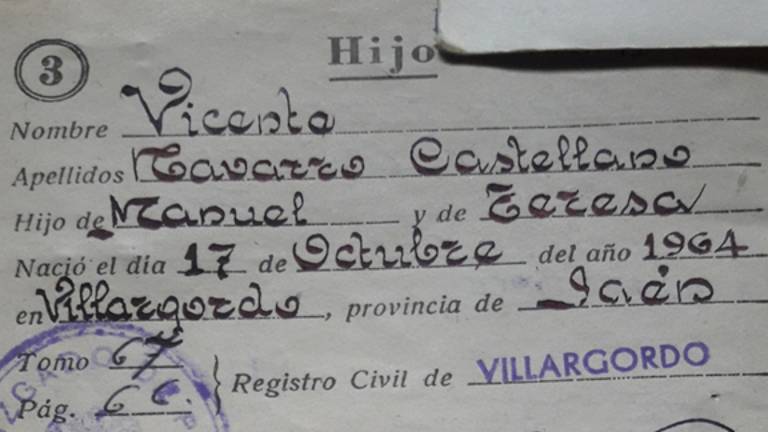 3
Hijo
Nombre Vicente
Apellidos Navarro Castellano
Hijo de Manuel y de Teresa
Nació el día 17 de Octubre del año 1964
en Villargordo, provincia de Jaén
Tomo 67
Registro Civil de VILLARGORDO
Pág. 66.